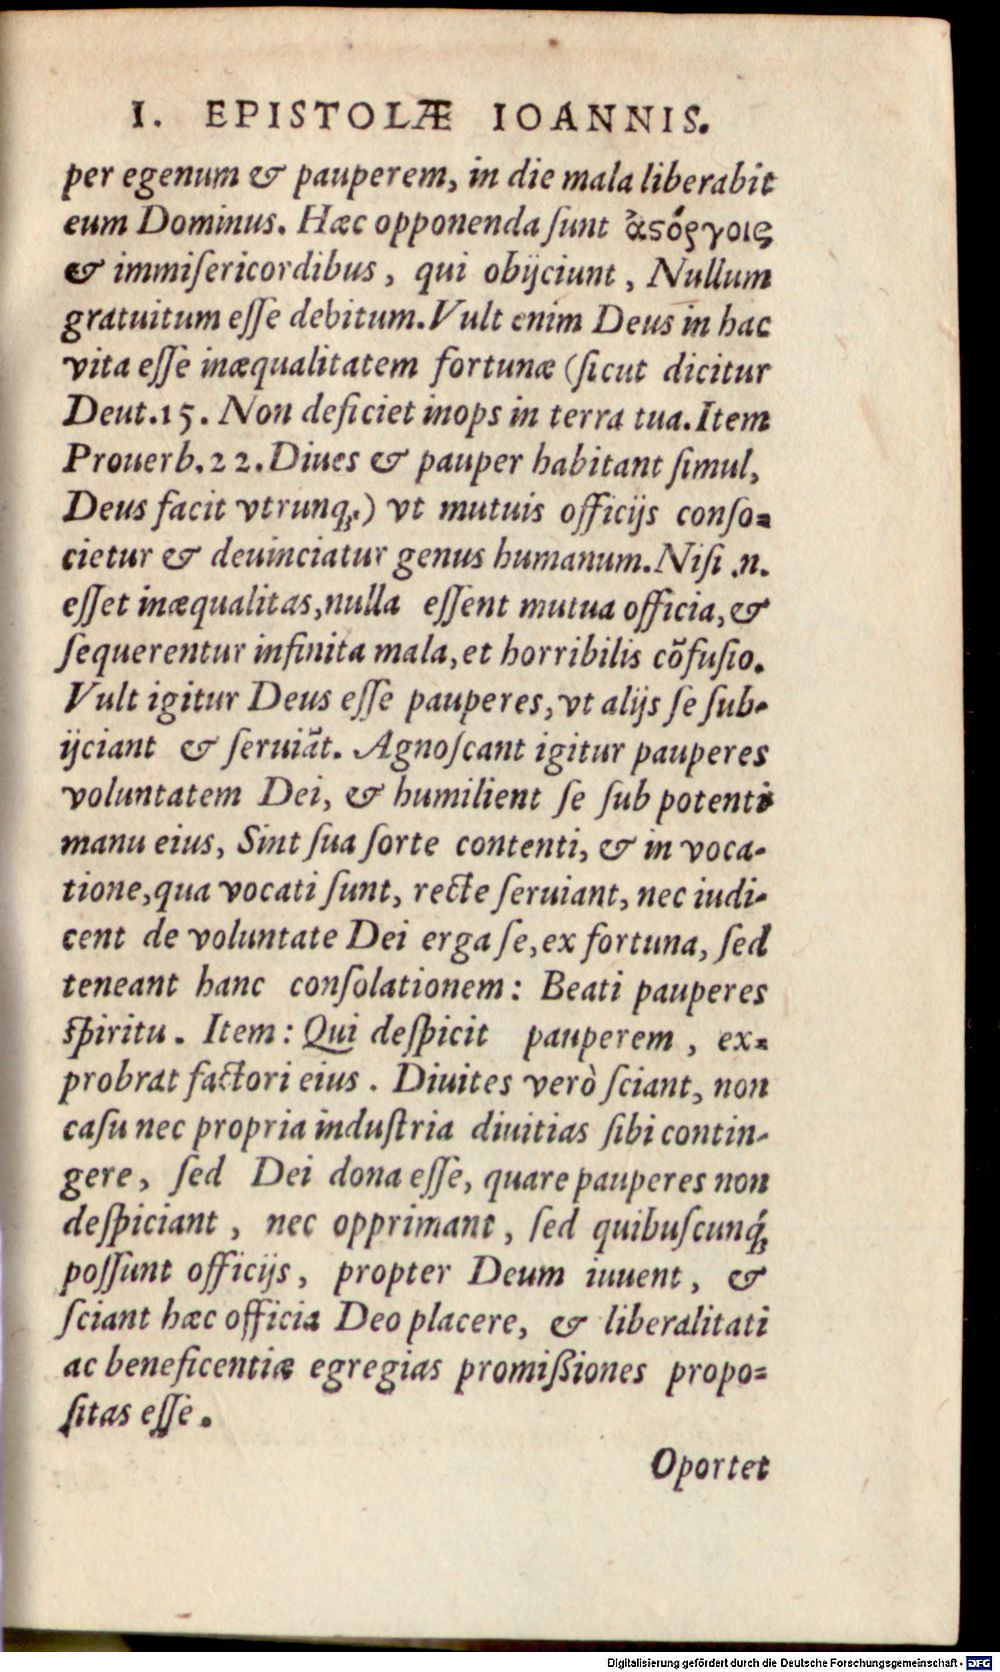 I. EPISTOLÆ IOANNIS.
per egenum & pauperem, in die mala liberabit
eum Dominus. Hæc opponenda ſunt ἀϛόργοις
& immiſericordibus, qui obijciunt, Nullum
gratuitum eſſe debitum. Vult enim Deus in hac
vita eſſe inæqualitatem fortunæ (ſicut dicitur
Deut. 15. Non deficiet inops in terra tua. Item
Prouerb. 22. Diues & pauper habitant ſimul,
Deus facit vtrunq́;.) vt mutuis officijs conſo=
cietur & deuinciatur genus humanum. Niſi .n.
eſſet inæqualitas, nulla eſſent mutua officia, &
ſequerentur infinita mala, et horribilis cõfuſio.
Vult igitur Deus eſſe pauperes, vt alijs ſe ſub-
ijciant & ſeruiãt. Agnoſcant igitur pauperes
voluntatem Dei, & humilient ſe ſub potenti
manu eius, Sint ſua ſorte contenti, & in voca-
tione, qua vocati ſunt, recte ſeruiant, nec iudi-
cent de voluntate Dei erga ſe, ex fortuna, ſed
teneant hanc conſolationem: Beati pauperes
ſpiritu. Item: Qui deſpicit pauperem, ex=
probrat factori eius. Diuites verò ſciant, non
caſu nec propria induſtria diuitias ſibi contin-
gere, ſed Dei dona eſſe, quare pauperes non
deſpiciant, nec opprimant, ſed quibuſcunq́;
poſſunt officijs, propter Deum iuuent, &
ſciant hæc officia Deo placere, & liberalitati
ac beneficentiæ egregias promißiones propo=
ſitas eſſe.
Oportet
Digitalisierung gefördert durch die Deutsche Forschungsgemeinschaft - DFG